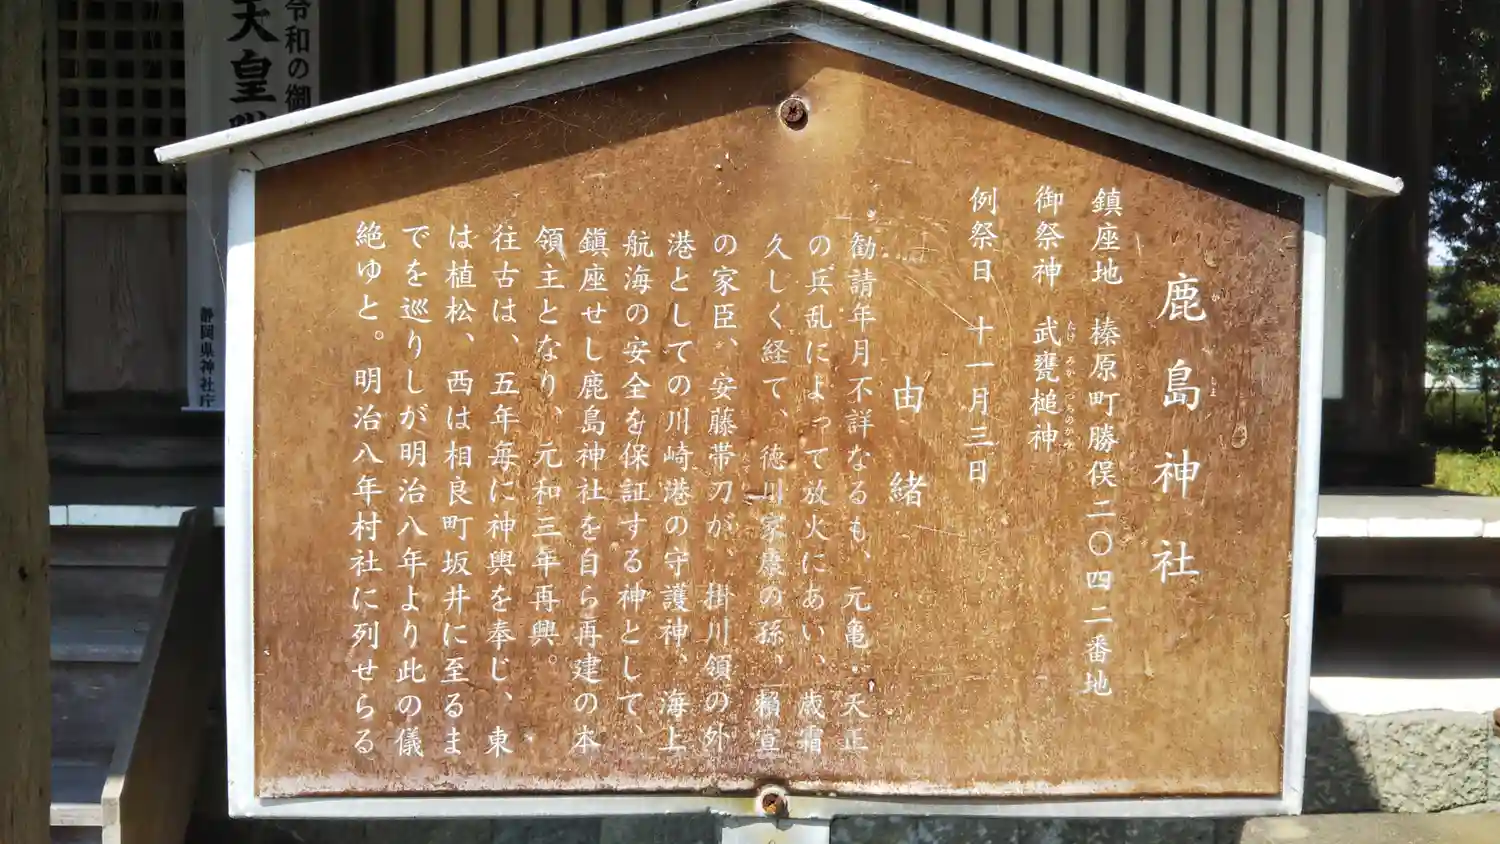 鹿島神社
鎮座地　榛原町勝俣二〇四二番地
御祭神　武甕槌神
例祭日　十一月三日
由緒
勧請年月不詳なるも、元亀・天正
の兵乱によって放火にあい、歳霜
久しく経て、徳川家康の孫、頼宣
の家臣、安藤帯刀が、掛川領の外
港としての川崎港の守護神、海上
航海の安全を保証する神として、
鎭座せし鹿島神社を自ら再建の本
領主となり、元和三年再興。
往古は、五年毎に神輿を奉じ、東
は植松、西は相良町坂井に至るま
でを巡りしが明治八年より此の儀
絶ゆと。明治八年村社に列せらる
令和の御
天皇
静岡県神社庁